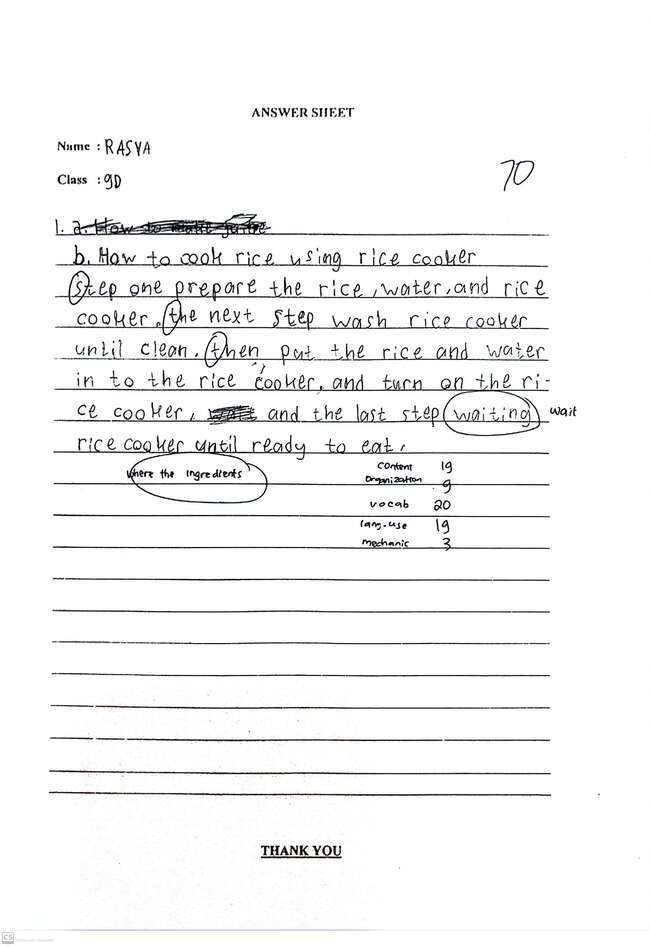 ANSWER SHEET
Name : RASYA
70
Class : 9D
1. a. How to make juice
b. How to cook rice using rice cooker
step one prepare the rice, water, and rice
cooker. the next step wash rice cooker
until clean. then put the rice and water
in to the rice cooker, and turn on the ri-
ce cooker, and the last step waiting wait
rice cooker until ready to eat,
where the ingredients
content 19
Organization 9
vocab 20
lang-use 19
mechanic 3
THANK YOU
CS